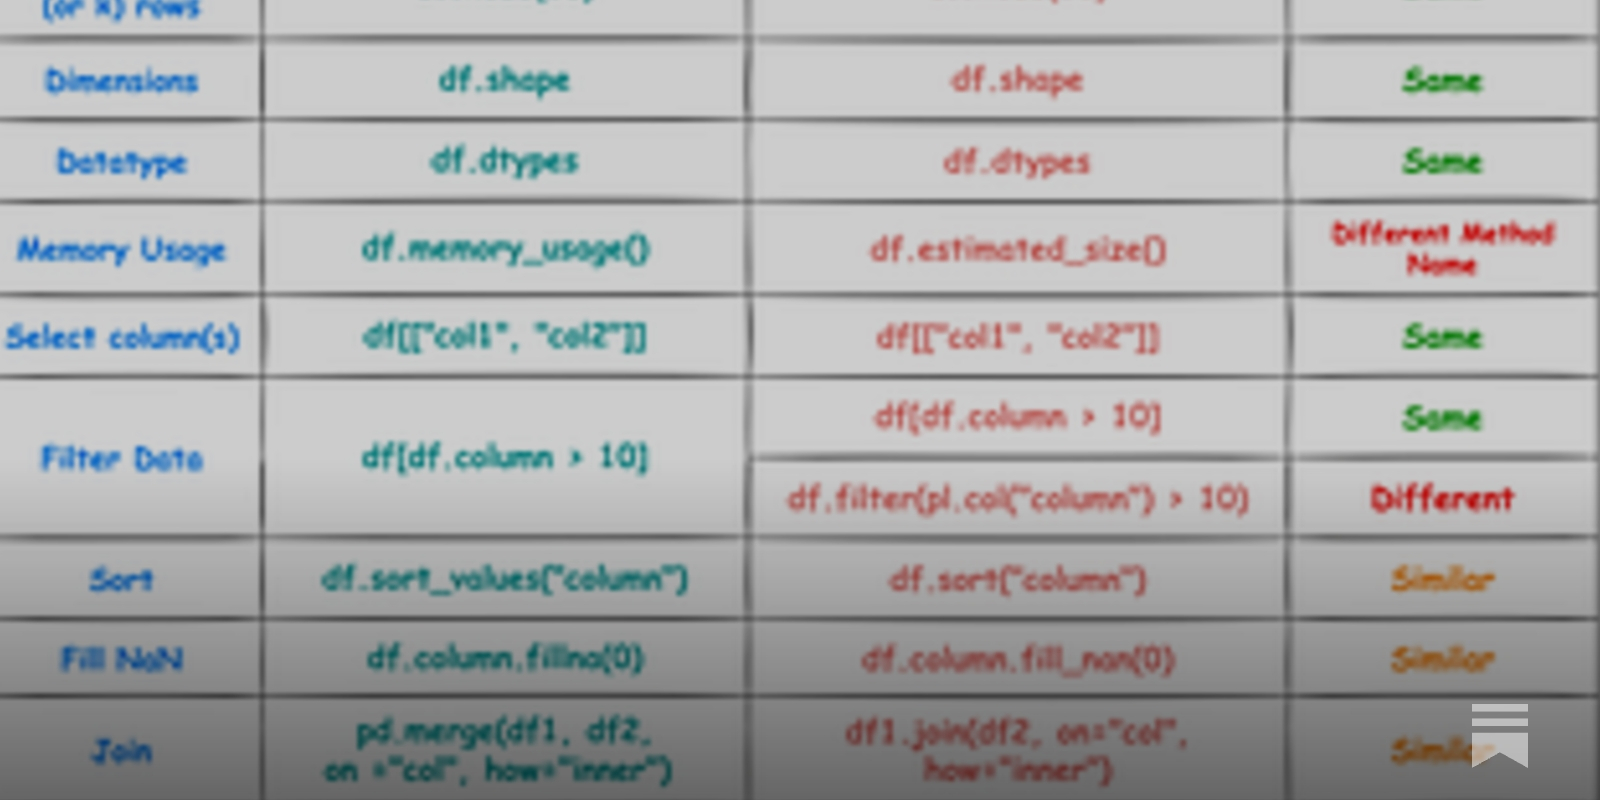 (or K) rows
Dimensions df.shape df.shape Same
Datatype df.dtypes df.dtypes Same
Memory Usage df.memory_usage() df.estimated_size() Different Method
Name
Select column(s) df[["col1", "col2"]] df[["col1", "col2"]] Same
Filter Data df[df.column > 10] df[df.column > 10] Same
df.filter(pl.col("column") > 10) Different
Sort df.sort_values("column") df.sort("column") Similar
Fill NaN df.column.fillna(0) df.column.fill_nan(0) Similar
Join pd.merge(df1, df2,
on ="col", how="inner") df1.join(df2, on="col",
how="inner") Similar